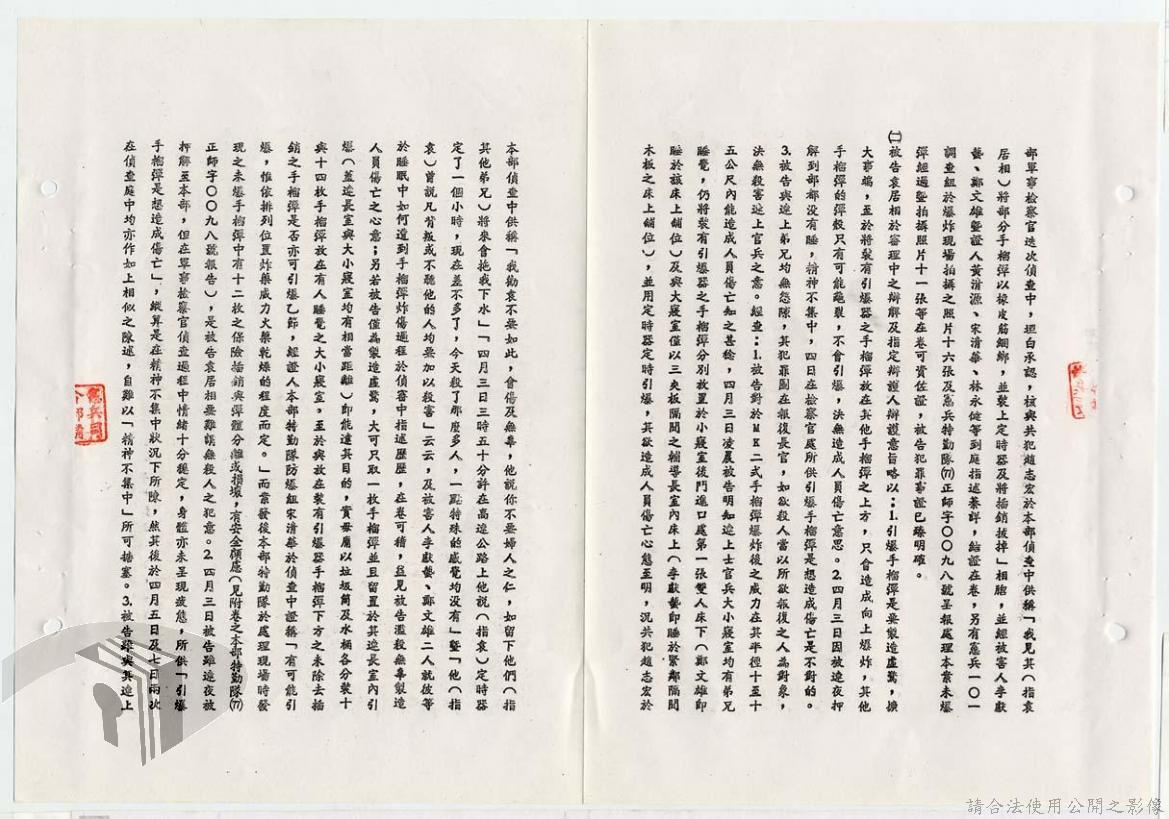 部軍事檢察官迭次偵查中,坦白承認,核與共犯趙志宏於本部偵查中供稱「我見其(指袁
居相)將部分手榴彈以橡皮筋綑綁,並裝上定時器及將插銷拔掉」相脗,並經被害人李獻
藝、鄭文雄暨證人黃清源、宋清華、林永健等到庭指述綦詳,結證在卷,另有憲兵一〇一
調查組於爆炸現場拍攝之照片十六張及憲兵特勤隊(77)正師字〇〇九八號呈報處理本案未爆
彈經過暨拍攝照片十一張等在卷可資佐證,被告犯罪事證已臻明確。
㈡被告袁居相於審理中之辯解及指定辯護人辯護意旨略以:1.引爆手榴彈是要製造虛驚,擴
大事端,至於將裝有引爆器之手榴彈放在其他手榴彈之上方,只會造成向上爆炸,其他
手榴彈的彈殼只有可能龜裂,不會引爆,決無造成人員傷亡意思。2.四月三日因被連夜押
解到部都沒有睡,精神不集中,四日在檢察官處所供引爆手榴彈是想造成傷亡是不對的。
3.被告與連上弟兄均無怨隙,其犯罪圖在報復長官,如欲殺人當以所欲報復之人為對象,
決無殺害連上官兵之意。經查:1.被告對於MK二式手榴彈爆炸後之威力在其半徑十至十
五公尺內能造成人員傷亡知之甚稔,四月三日凌晨被告明知連上士官兵大小寢室均有弟兄
睡覺,仍將裝有引爆器之手榴彈分別放置於小寢室後門進口處第一張雙人床下(鄭文雄即
睡於該床上舖位)及與大寢室僅以三夾板隔間之輔導長室內床上(李獻藝即睡於緊鄰隔間
木板之床上舖位),並用定時器定時引爆,其欲造成人員傷亡心態至明,況共犯趙志宏於
本部偵查中供稱「我勸袁不要如此,會傷及無辜,他說你不要婦人之仁,如留下他們(指
其他弟兄)將來會拖我下水」「四月三日三時五十分許在高速公路上他說(指袁)定時器
定了一個小時,現在差不多了,今天殺了那麼多人,一點特殊的感覺均沒有」暨「他(指
袁)曾說凡背叛或不聽他的人均要加以殺害」云云,及被害人李獻藝、鄭文雄二人就彼等
於睡眠中如何遭到手榴彈炸傷過程於偵審中指述歷歷,在卷可稽,益見被告濫殺無辜製造
人員傷亡之心意;另若被告僅為製造虛驚,大可只取一枚手榴彈並且留置於其連長室內引
爆(蓋連長室與大小寢室均有相當距離)即能達其目的,實毋庸以垃圾筒及水桶各分裝十
與十四枚手榴彈放在有人睡覺之大小寢室。至於與放在裝有引爆器手榴彈下方之未除去插
銷之手榴彈是否亦可引爆乙節,經證人本部特勤隊防爆組宋清華於偵查中證稱「有可能引
爆,惟依排列位置炸藥威力火藥乾燥的程度而定。」而案發後本部特勤隊於處理現場時發
現之未爆手榴彈中有十二枚之保險插銷與彈體分離或損壞,有安全顧慮(見附卷之本部特勤隊(77)
正師字〇〇九八號報告),是被告袁居相要難謂無殺人之犯意。2.四月三日被告雖連夜被
押解至本部,但在軍事檢察官偵查過程中情緒十分穩定,身體亦未呈現疲態,所供「引爆
手榴彈是想造成傷亡」,縱算是在精神不集中狀況下所陳,然其後於四月五日及七日兩次
在偵查庭中均亦作如上相似之陳述,自難以「精神不集中」所可搪塞。3.被告雖與其連上
請合法使用公開之影像